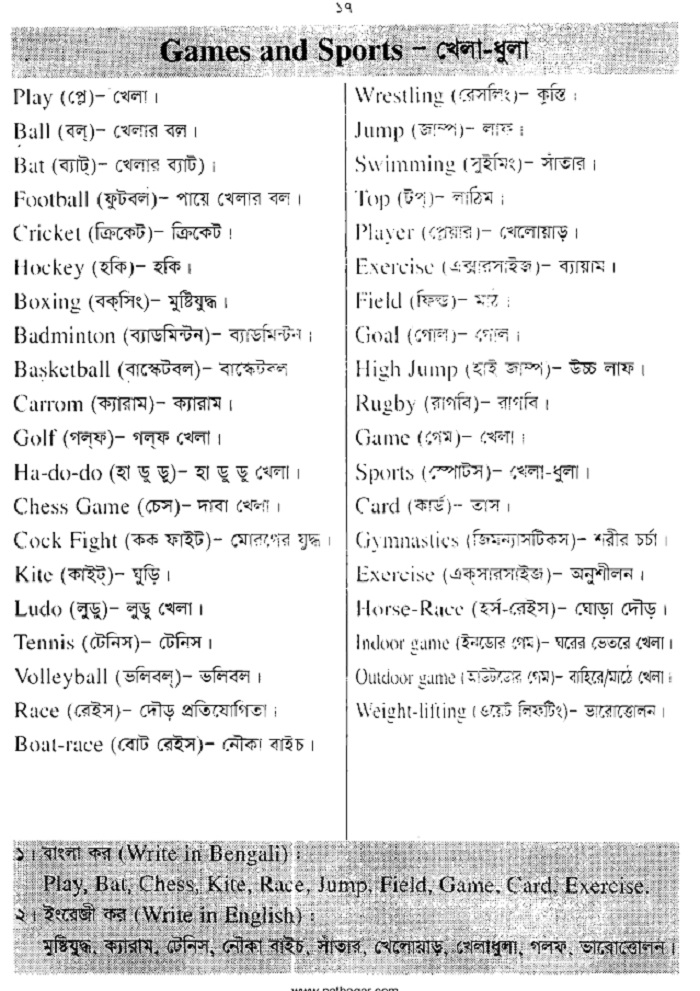 ১৭
Games and Sports – খেলা-ধুলা
Play (প্লে)– খেলা।
Ball (বল্)– খেলার বল।
Bat (ব্যাট্)– খেলার ব্যাট)।
Football (ফুটবল)– পায়ে খেলার বল।
Cricket (ক্রিকেট)– ক্রিকেট।
Hockey (হকি)– হকি।
Boxing (বক্‌সিং)– মুষ্টিযুদ্ধ।
Badminton (ব্যাডমিন্টন)– ব্যাডমিন্টন।
Basketball (বাস্কেটবল)– বাস্কেটবল
Carrom (ক্যারাম)– ক্যারাম।
Golf (গল্‌ফ)– গল্‌ফ খেলা।
Ha-do-do (হা ডু ডু)– হা ডু ডু খেলা।
Chess Game (চেস)– দাবা খেলা।
Cock Fight (কক ফাইট)– মোরগের যুদ্ধ।
Kite (কাইট্)– ঘুড়ি।
Ludo (লুডু)– লুডু খেলা।
Tennis (টেনিস)– টেনিস।
Volleyball (ভলিবল্)– ভলিবল।
Race (রেইস)– দৌড় প্রতিযোগিতা।
Boat-race (বোট রেইস)– নৌকা বাইচ।
Wrestling (রেসলিং)– কুস্তি।
Jump (জাম্প)– লাফ।
Swimming (সুইমিং)– সাঁতার।
Top (টপ্)– লাঠিম।
Player (প্লেয়ার)– খেলোয়াড়।
Exercise (এক্সারসাইজ)– ব্যায়াম।
Field (ফিল্ড)– মাঠ।
Goal (গোল)– গোল।
High Jump (হাই জাম্প)– উচ্চ লাফ।
Rugby (রাগবি)– রাগবি।
Game (গেম)– খেলা।
Sports (স্পোর্টস)– খেলা-ধুলা।
Card (কার্ড)– তাস।
Gymnastics (জিমন্যাসটিকস)– শরীর চর্চা।
Exercise (এক্‌সারসাইজ)– অনুশীলন।
Horse-Race (হর্স-রেইস)– ঘোড়া দৌড়।
Indoor game (ইনডোর গেম)– ঘরের ভেতরে খেলা।
Outdoor game (আউটডোর গেম)– বাহিরে/মাঠে খেলা।
Weight-lifting (ওয়েট লিফটিং)– ভারোত্তোলন।
১। বাংলা কর (Write in Bengali) :
Play, Bat, Chess, Kite, Race, Jump, Field, Game, Card, Exercise.
২। ইংরেজী কর (Write in English) :
মুষ্টিযুদ্ধ, ক্যারাম, টেনিস, নৌকা বাইচ, সাঁতার, খেলোয়াড়, খেলাধুলা, গলফ, ভারোত্তোলন।
www.pathagar.com